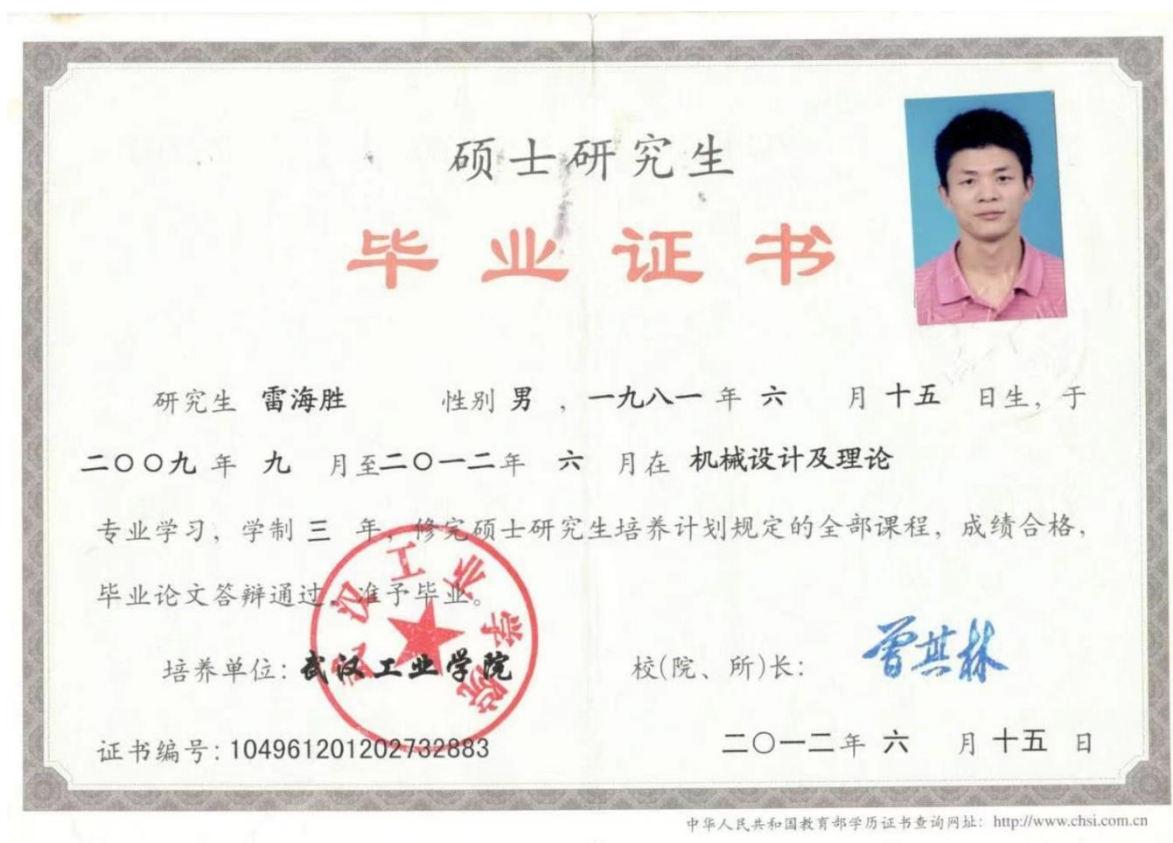 硕士研究生
毕业证书
研究生 雷海胜 性别 男 ，一九八一 年 六 月 十五 日生，于
二〇〇九 年 九 月至二〇一二年 六 月在 机械设计及理论
专业学习，学制 三 年，修完硕士研究生培养计划规定的全部课程，成绩合格，
毕业论文答辩通过，准予毕业。
武汉工业学院
培养单位：武汉工业学院 校(院、所)长： 曾其林
证书编号：104961201202732883 二〇一二年 六 月 十五 日
中华人民共和国教育部学历证书查询网址：http://www.chsi.com.cn